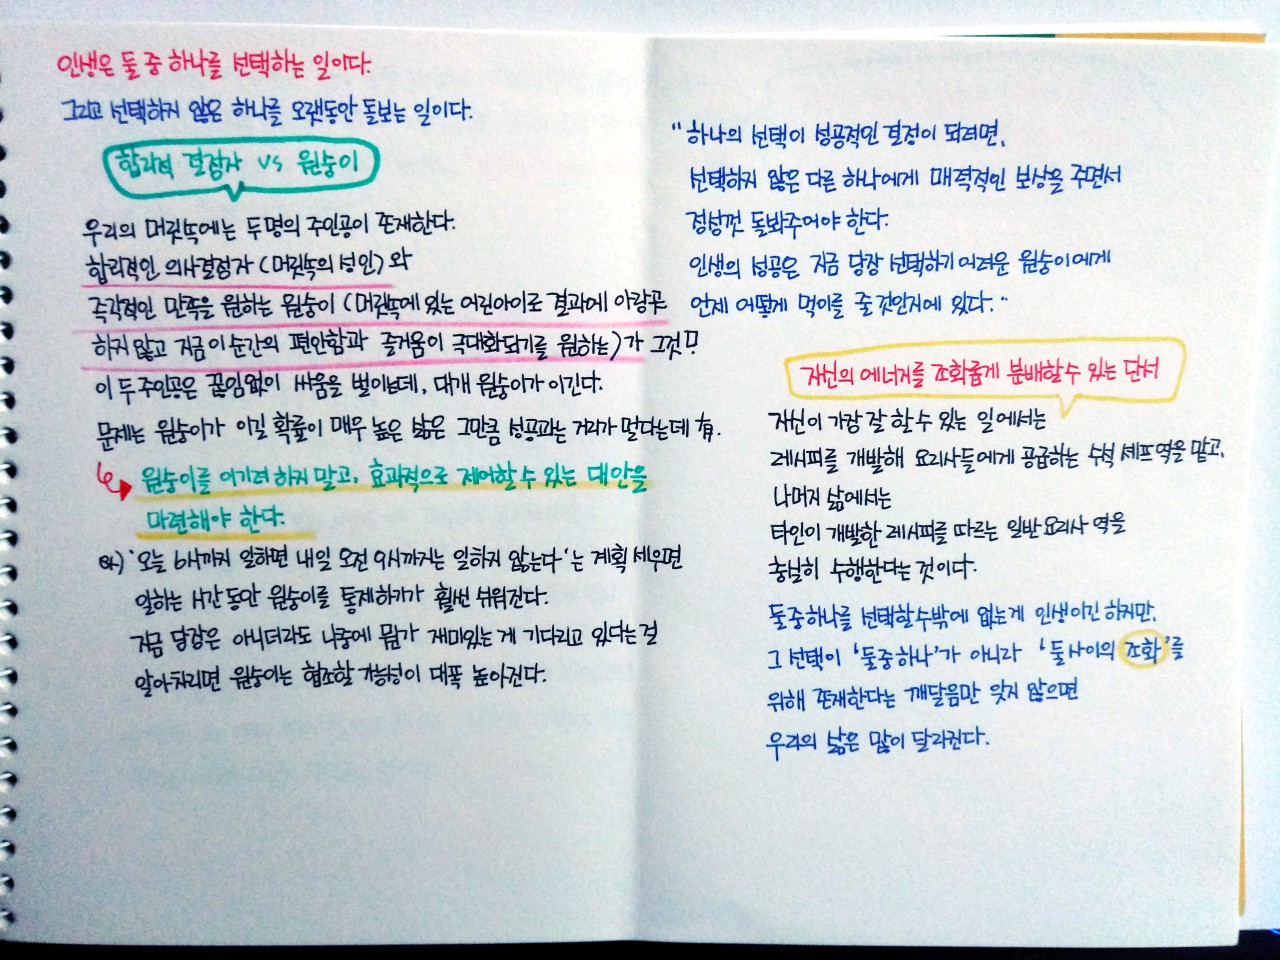 인생은 둘 중 하나를 선택하는 일이다.
그리고 선택하지 않은 하나를 오랫동안 돌보는 일이다.
합리적 결정자 vs 원숭이
우리의 머릿속에는 두 명의 주인공이 존재한다.
합리적인 의사결정자 (머릿속의 성인)와
즉각적인 만족을 원하는 원숭이 (머릿속에 있는 어린아이로 결과에 아랑곳
하지 않고 지금 이 순간의 편안함과 즐거움이 극대화되기를 원하는)가 그것!
이 두 주인공은 끊임없이 싸움을 벌이는데, 대개 원숭이가 이긴다.
문제는 원숭이가 이길 확률이 매우 높은 삶은 그만큼 성공과는 거리가 멀다는데 有.
원숭이를 이기려 하지 말고, 효과적으로 제어할 수 있는 대안을
마련해야 한다.
예) '오늘 6시까지 일하면 내일 오전 9시까지는 일하지 않는다'는 계획 세우면
일하는 시간 동안 원숭이를 통제하기가 훨씬 쉬워진다.
지금 당장은 아니더라도 나중에 뭔가 재미있는 게 기다리고 있다는 걸
알아차리면 원숭이는 협조할 가능성이 대폭 높아진다.
"하나의 선택이 성공적인 결정이 되려면,
선택하지 않은 다른 하나에게 매력적인 보상을 주면서
정성껏 돌봐주어야 한다.
인생의 성공은 지금 당장 선택하기 어려운 원숭이에게
언제 어떻게 먹이를 줄 것인지에 있다."
자신의 에너지를 조화롭게 분배할 수 있는 단서
자신이 가장 잘 할 수 있는 일에서는
레시피를 개발해 요리사들에게 공급하는 수석 셰프 역을 맡고,
나머지 삶에서는
타인이 개발한 레시피를 따르는 일반 요리사 역을
충실히 수행한다는 것이다.
둘 중 하나를 선택할 수밖에 없는게 인생이긴 하지만,
그 선택이 '둘 중 하나'가 아니라 '둘 사이의 조화'를
위해 존재한다는 깨달음만 잊지 않으면
우리의 삶은 많이 달라진다.